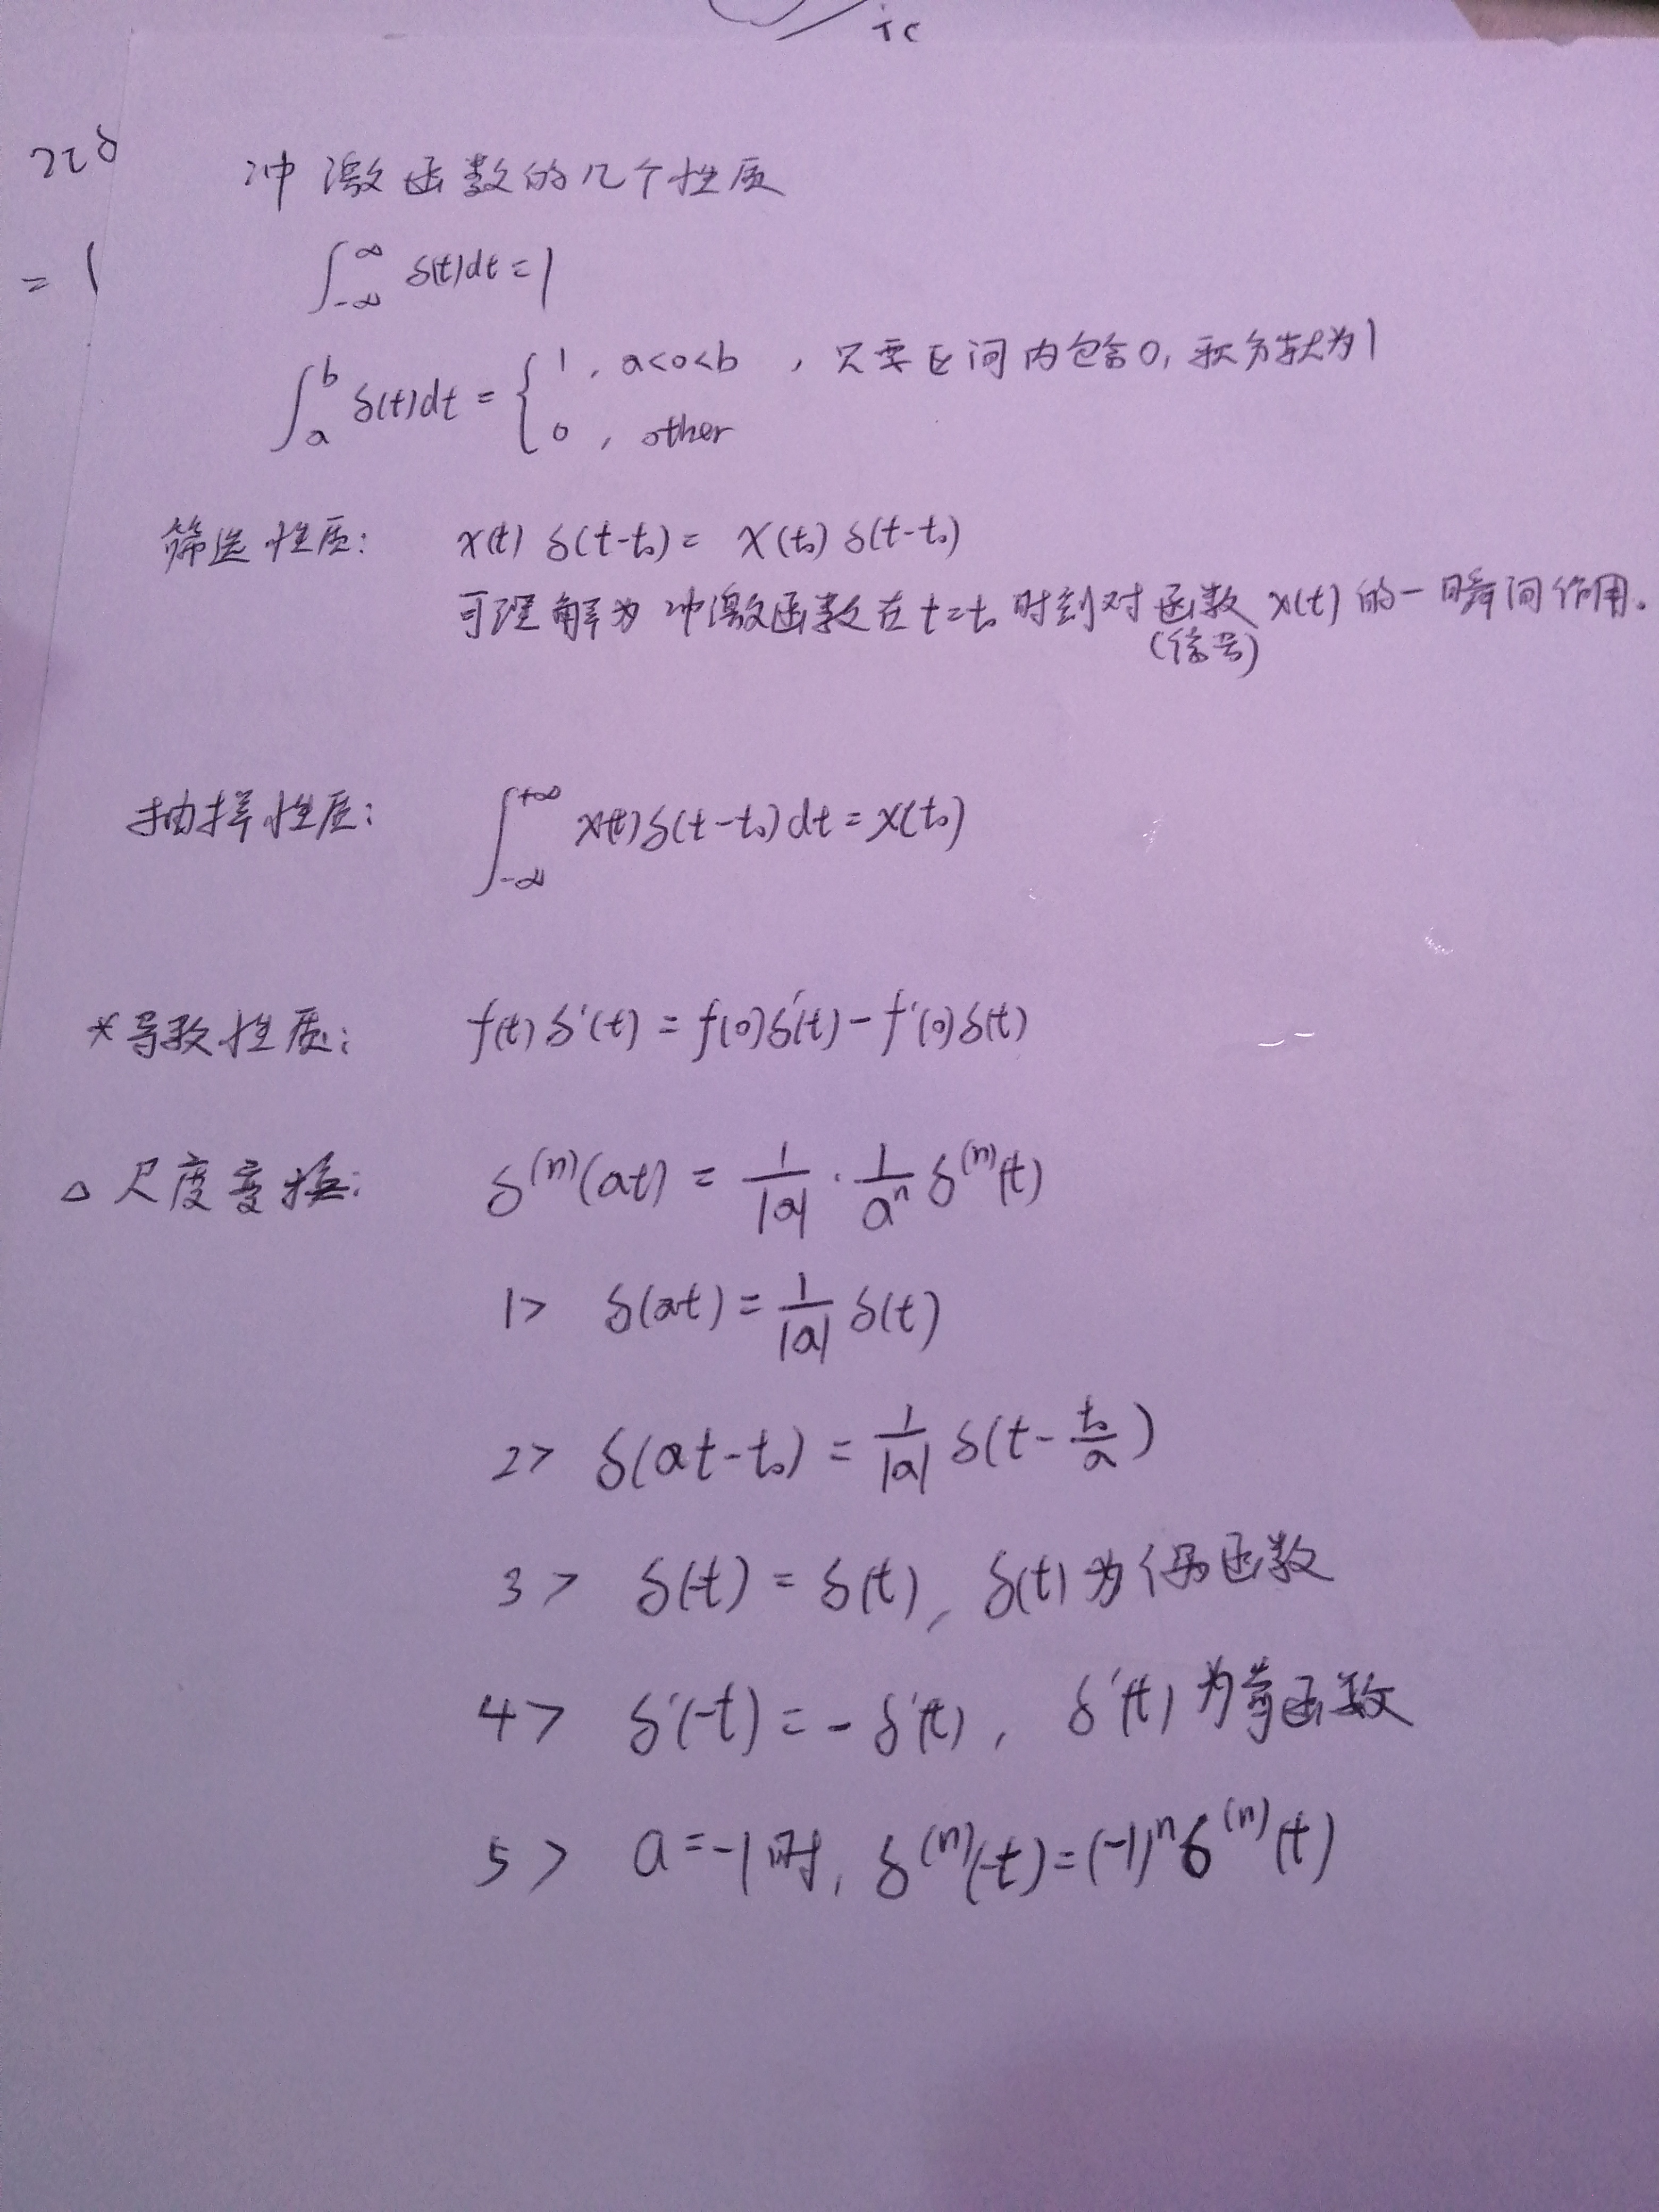 冲激函数的几个性质
∫_{-∞}^{∞} δ(t)dt = 1
∫_a^b δ(t)dt = { 1, a<0<b , 只要区间内包含0, 积分就为1
0 , other
筛选性质: x(t) δ(t-t₀) = x(t₀) δ(t-t₀)
可理解为 冲激函数在 t=t₀ 时刻对 函数 x(t) 的一瞬间作用。
(信号)
抽样性质: ∫_{-∞}^{+∞} x(t)δ(t-t₀)dt = x(t₀)
*导数性质: f(t)δ'(t) = f(0)δ'(t) - f'(0)δ(t)
△ 尺度变换: δ^{(n)}(at) = 1/|a| · 1/a^n δ^{(n)}(t)
1> δ(at) = 1/|a| δ(t)
2> δ(at-t₀) = 1/|a| δ(t - t₀/a)
3> δ(-t) = δ(t), δ(t)为偶函数
4> δ'(-t) = -δ'(t), δ'(t)为奇函数
5> a=-1时, δ^{(n)}(-t) = (-1)^n δ^{(n)}(t)
= 1